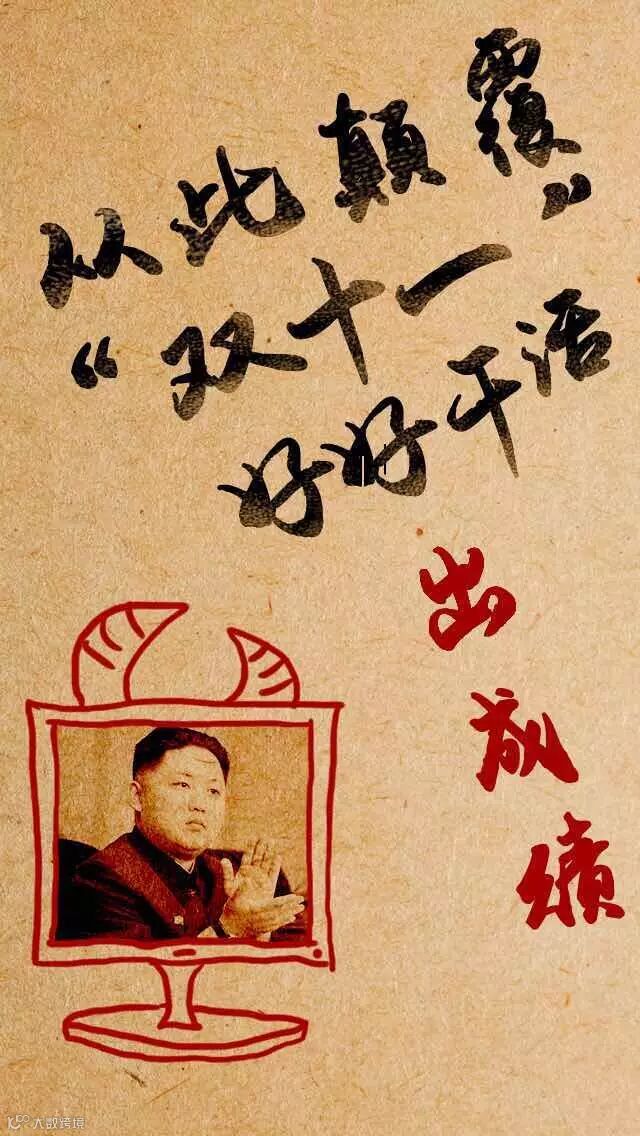 从此颠覆
“双十一”
好好干活
出成绩
大数跨境